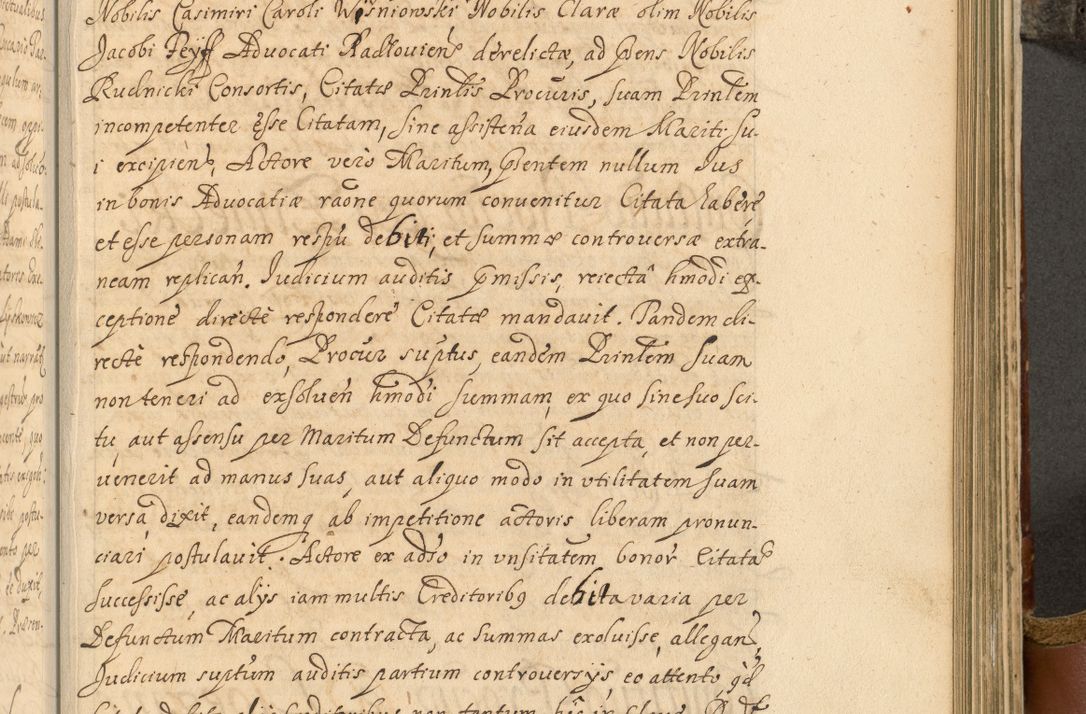 Nobilis Casimiri Caroli Wiśniowski Nobilis Claræ olim Nobilis
Jacobi Feyff Advocati Radłovien̄ derelictæ, ad p̄sens Nobilis
Rudnicki Consortis, Citatæ Prin̄lis Procuris, suam Prin̄lem
incompetenter Esse Citatam, sine assisten̄a eiusdem Mariti su-
i excipien̄, Actore vero Maritum, p̄sentem nullum Jus
in bonis Advocatiæ rāone quorum convenitur Citata habere
et esse personam respū debiti, et summæ controversæ extra-
neam replican̄. Judicium auditis p̄missis, reiectâ hmōdi ex-
ceptione directè respondere Citatæ mandavit. Tandem di-
rectè respondendo, Procur sup̄tus, eandem Prin̄lem suam
non teneri ad exsolven̄ hmōdi summam, ex quo sine suo sci-
tu, aut assensu per Maritum Defunctum sit accepta, et non per-
venerit ad manus suas, aut aliquo modo in vtilitatem suam
versa dixit, eandemq ab impetitione actoris liberam pronun-
ciari postulavit. Actore ex adso in vnsitatem bonor Citata
successisse, ac alys iam multis Creditorib9 debita varia per
Defunctum Maritum contracta, ac summas exoluisse, allegan̄,
Judicium sup̄tum auditis partium controversys, eo attento, qd